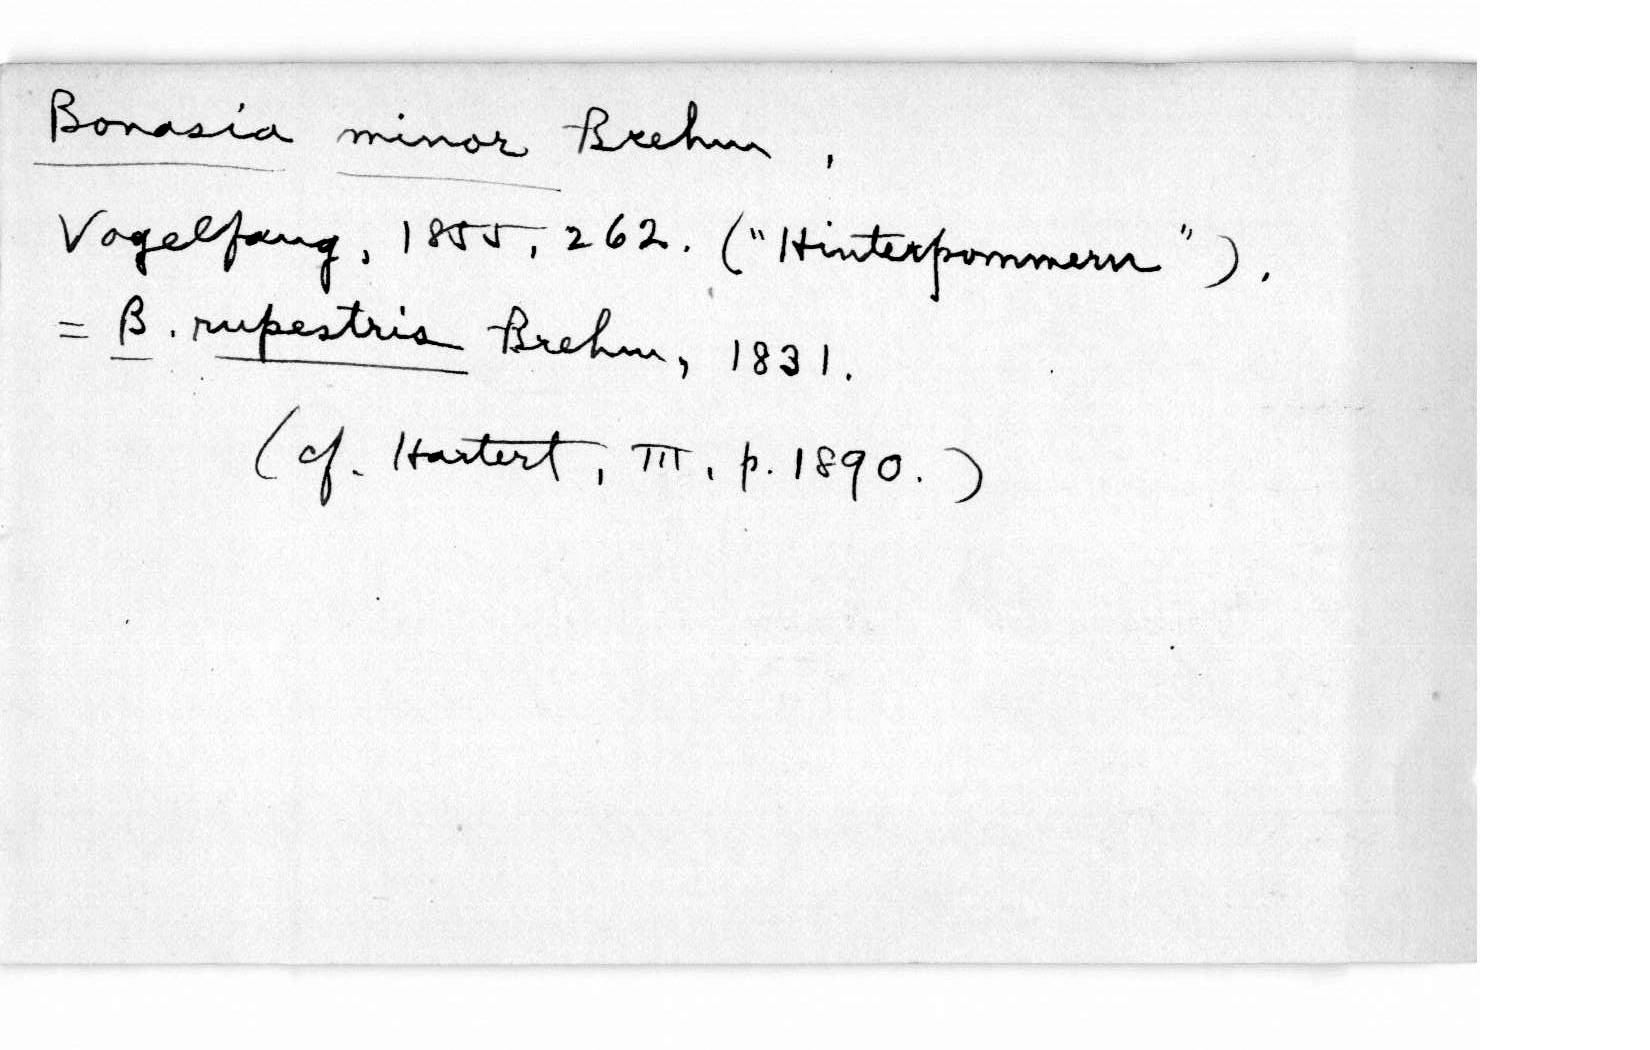 Bonasia minor Brehm,
Vogelfang, 1855, 262. ("Hinterpommern").
= B. rupestris Brehm, 1831.
(cf. Hartert, III, p. 1890.)